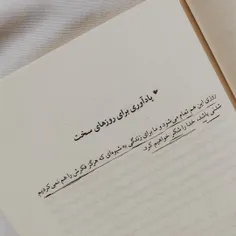 * یادآوری برای روزهای سخت
روزی این هم تمام می‌شود و ما برای زندگی به شیوه‌ای که هرگز فکرش را هم نمی‌کردیم
شدنی باشد، خدا را شکر خواهیم کرد.